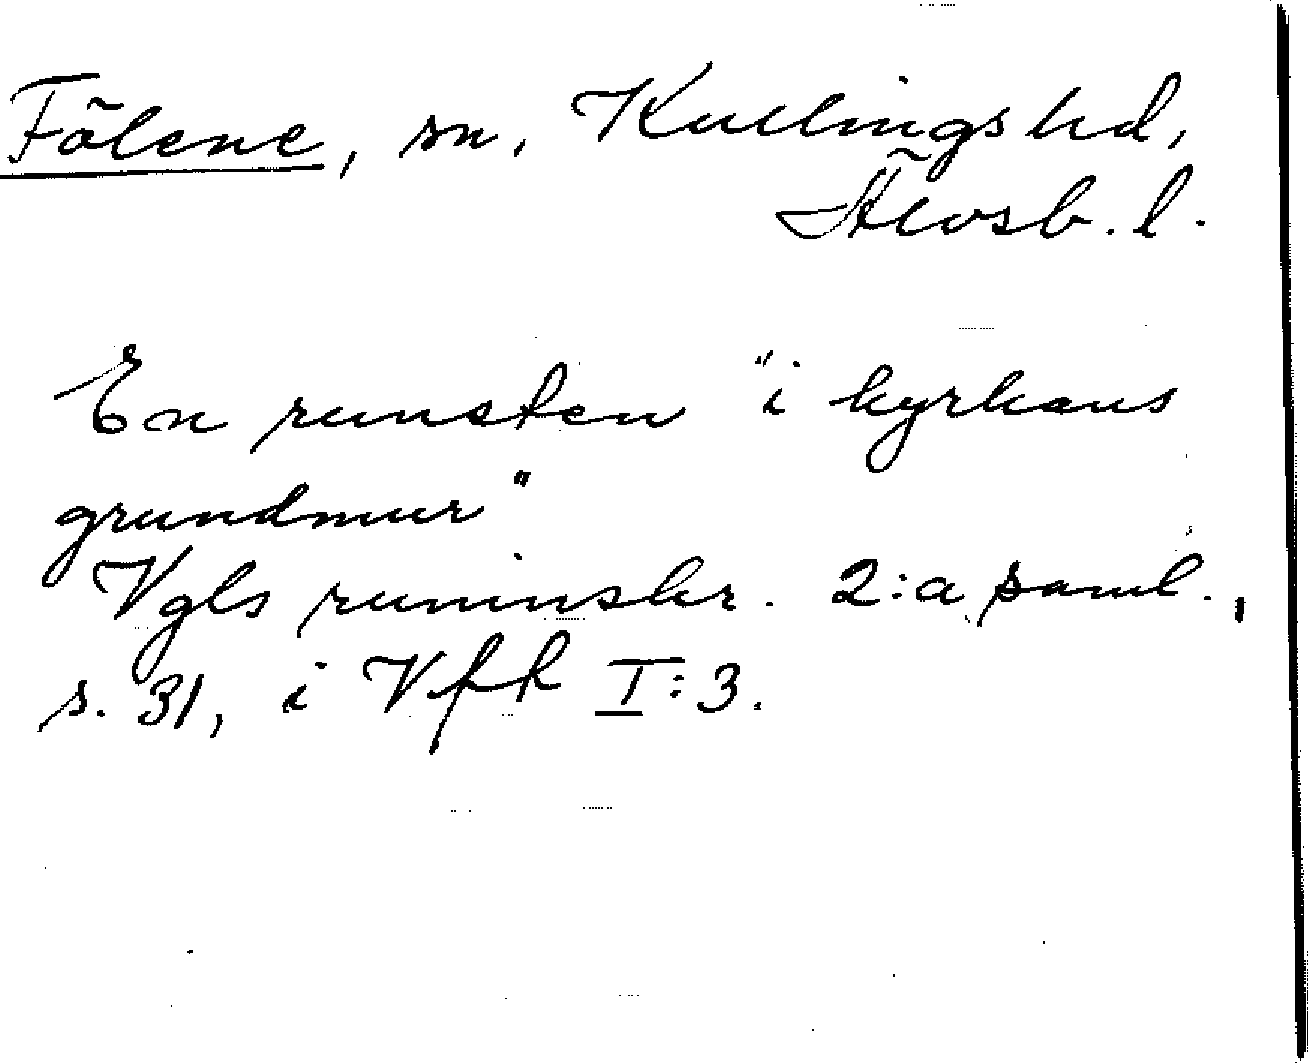 Fölene, sn, Kullings hd,
Älvsb. l.
En runsten "i kyrkans
grundmur"
Vgls runinskr. 2:a saml.,
s. 31, i Vfk I:3.